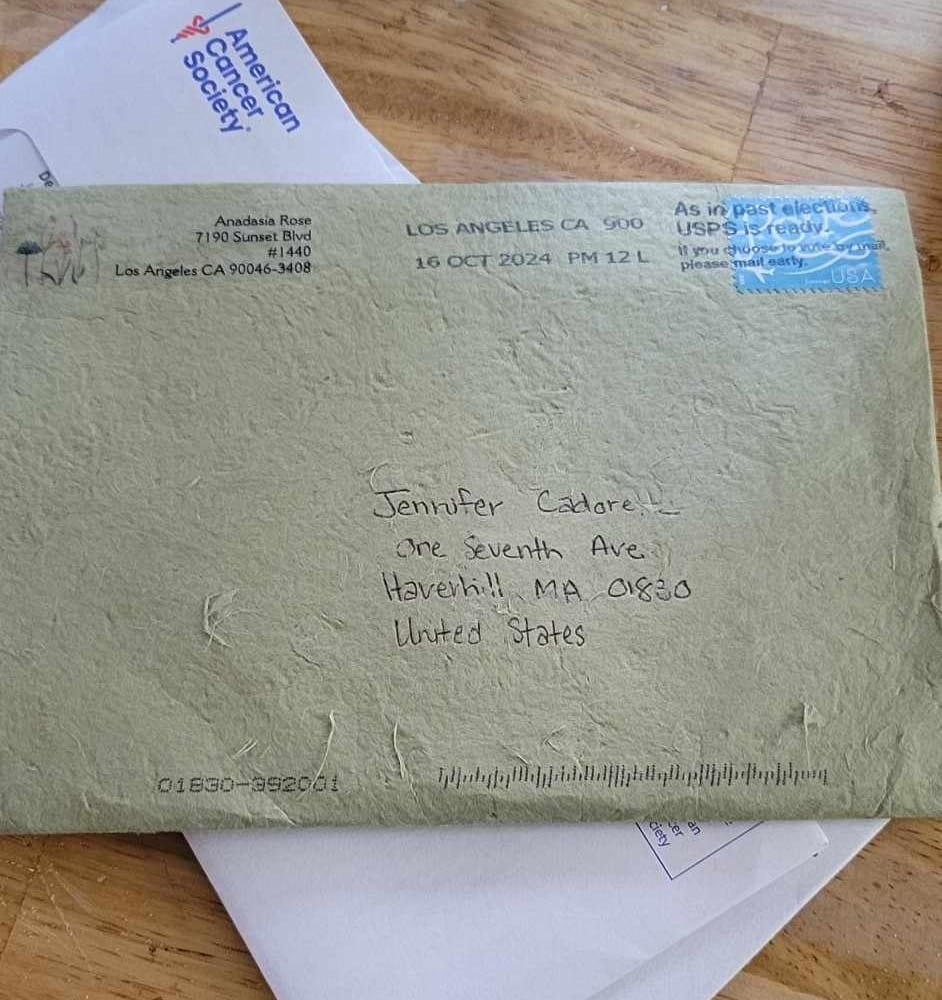 American
Cancer
Society
De
Anadasia Rose
7190 Sunset Blvd
#1440
Los Angeles CA 90046-3408
LOS ANGELES CA 900
16 OCT 2024 PM 12 L
As in past elections,
USPS is ready.
If you choose to vote by mail,
please mail early.
USA
Jennifer
One Seventh Ave
Haverhill, MA 01830
United States
01830-392001
an
cer
ciety